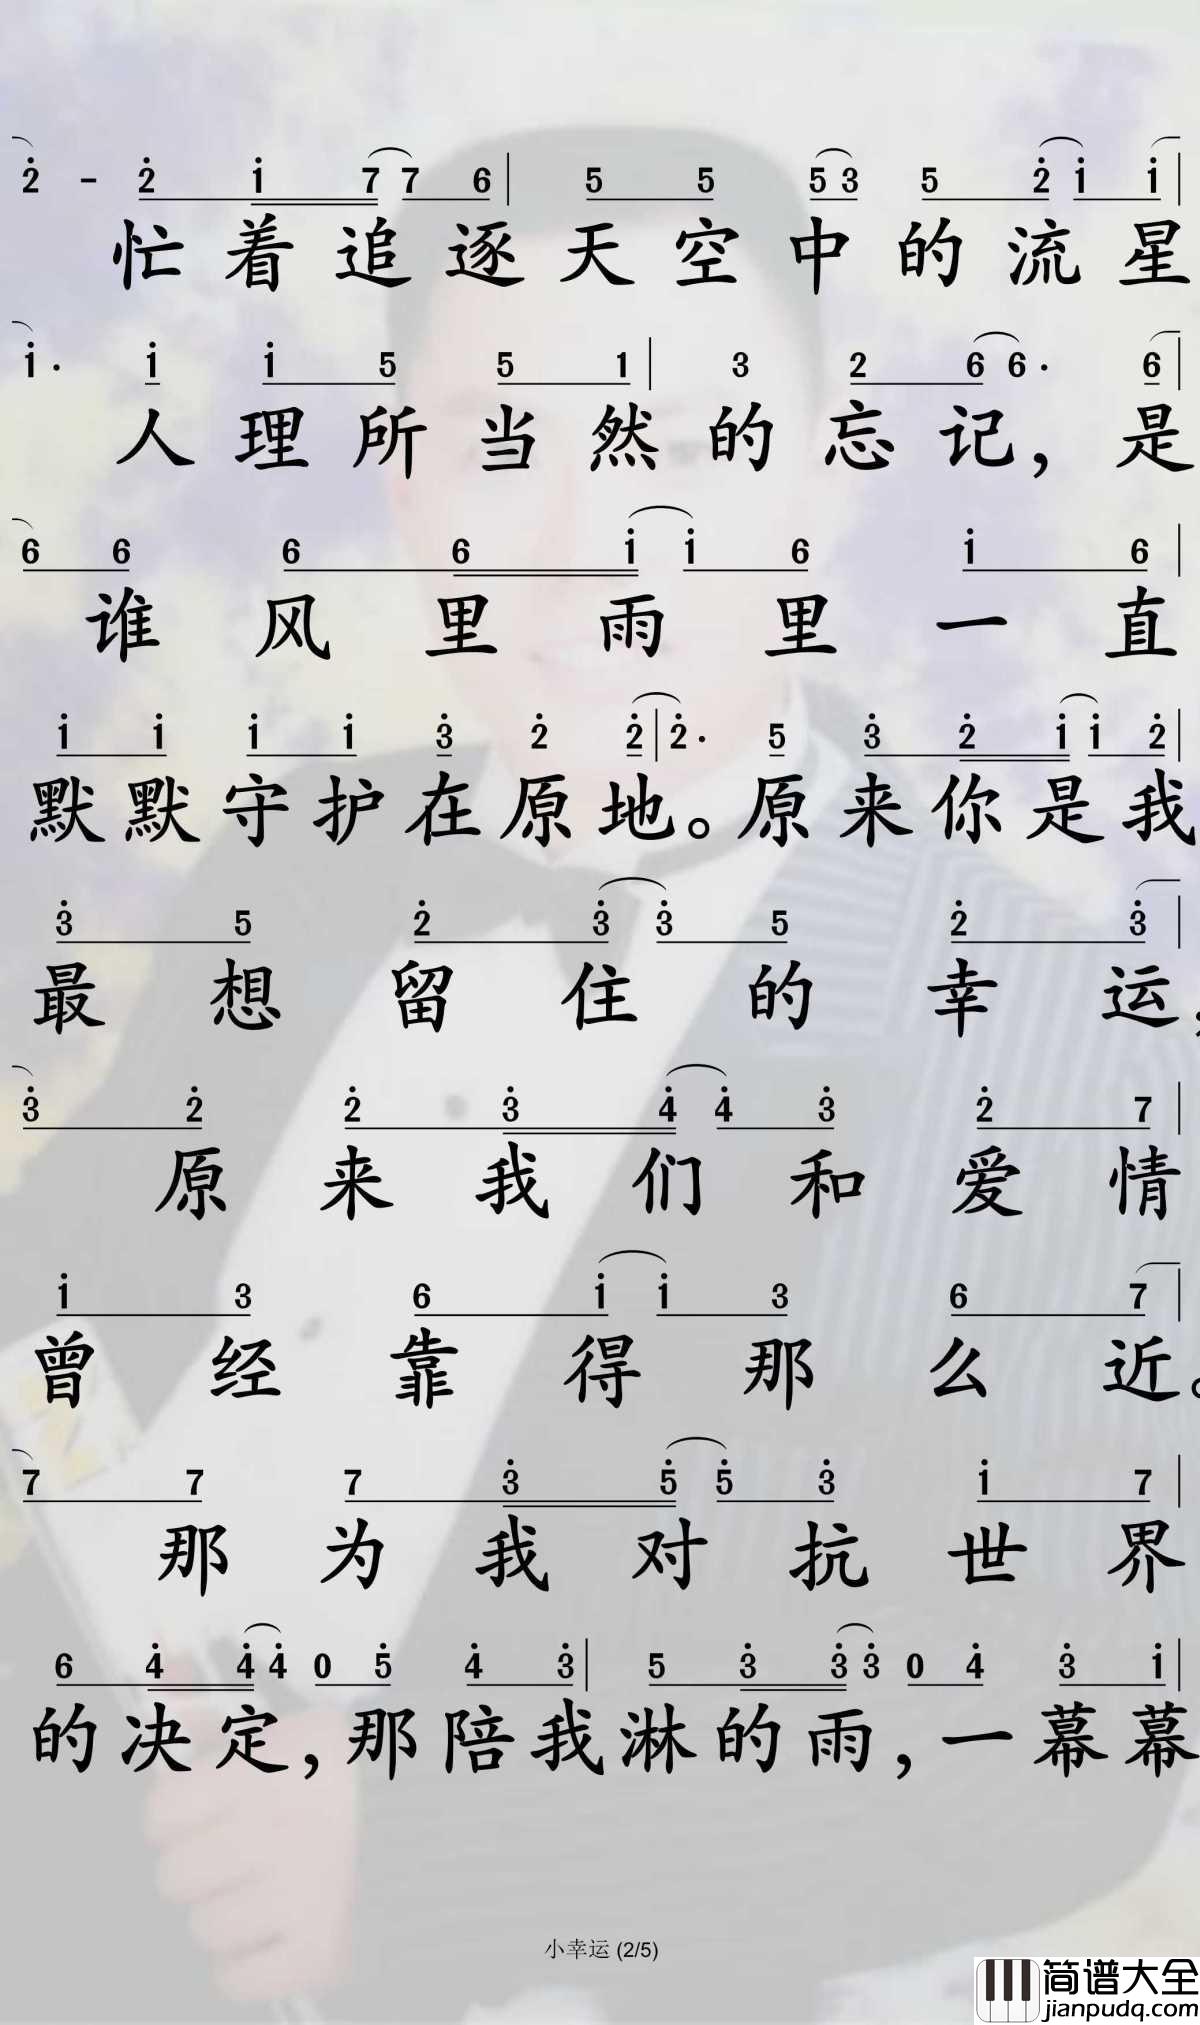 2̇ - 2̇ 1̇ 7 7 6 | 5 5 5 3 5 2̇ 1̇ 1̇ |
忙着追逐天空中的流星
1̇· 1̇ 1̇ 5 5 1 | 3 2 6 6· 6 |
人理所当然的忘记，是
6 6 6 6 1̇ 1̇ 6 1̇ 6 |
谁风里雨里一直
1̇ 1̇ 1̇ 1̇ 3̇ 2̇ 2̇ | 2̇· 5 3̇ 2̇ 1̇ 1̇ 2̇ |
默默守护在原地。原来你是我
3̇ 5 2̇ 3̇ 3̇ 5 2̇ 3̇ |
最想留住的幸运，
3̇ 2̇ 2̇ 3̇ 4̇ 4̇ 3̇ 2̇ 7 |
原来我们和爱情
1̇ 3 6 1̇ 1̇ 3 6 7 |
曾经靠得那么近。
7 7 7 3̇ 5̇ 5̇ 3̇ 1̇ 7 |
那为我对抗世界
6 4̇ 4̇ 4̇ 0 5̇ 4̇ 3̇ | 5 3̇ 3̇ 3̇ 0 4̇ 3̇ 1̇ |
的决定，那陪我淋的雨，一幕幕
小幸运 (2/5)
简谱大全
jianpudq.com